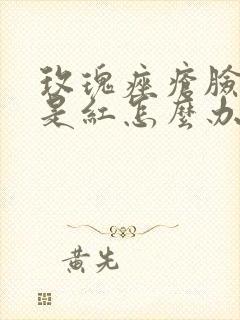 玫瑰痤瘡臉
是紅怎麼办
黃先